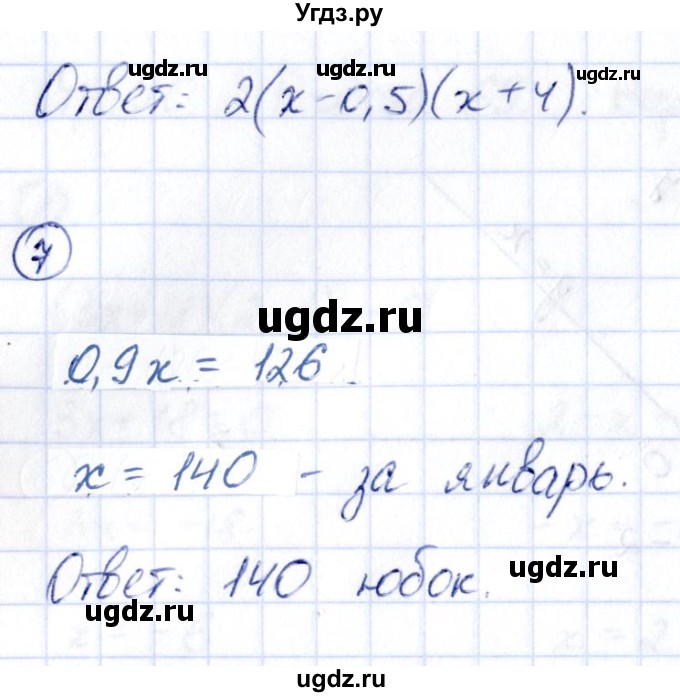 Угдз.ру
ugdz.ru ugdz.ru
Ответ: 2(x-0,5)(x+4).
7
ugdz.ru
0,9x = 126
x = 140 - за январь.
Ответ: 140 юбок.
ugdz.ru
ugdz.ru
ugdz.ru